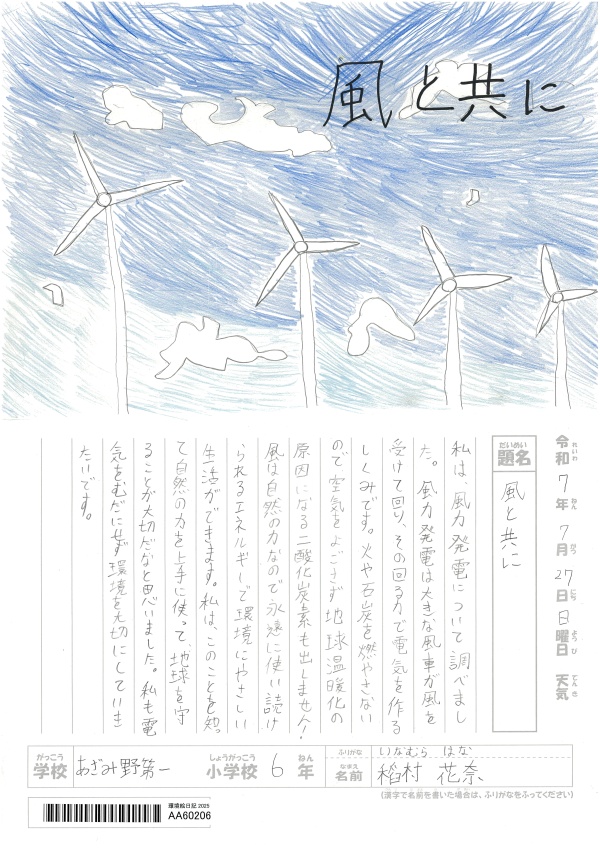 風と共に
令和7年7月27日日曜日 天気
れいわ ねん がつ にち ようび てんき
だいめい
題名 風と共に
私は、風力発電について調べまし
た。風力発電は大きな風車が風を
受けて回り、その回る力で電気を作る
しくみです。火や石炭を燃やさない
ので空気をよごさず地球温暖化の
原因になる二酸化炭素も出しません!
風は自然の力なので永遠に使い続け
られるエネルギーで環境にやさしい
生活ができます。私は、このことを知っ
て自然の力を上手に使って、地球を守
ることが大切だなと思いました。私も電
気をむだにせず環境を大切にしていき
たいです。
がっこう しょうがっこう ねん ふりがな いなむら はな
学校 あざみ野第一 小学校 6年 なまえ 名前 稲村 花奈
(漢字で名前を書いた場合は、ふりがなをふってください)
環境絵日記 2025
AA60206